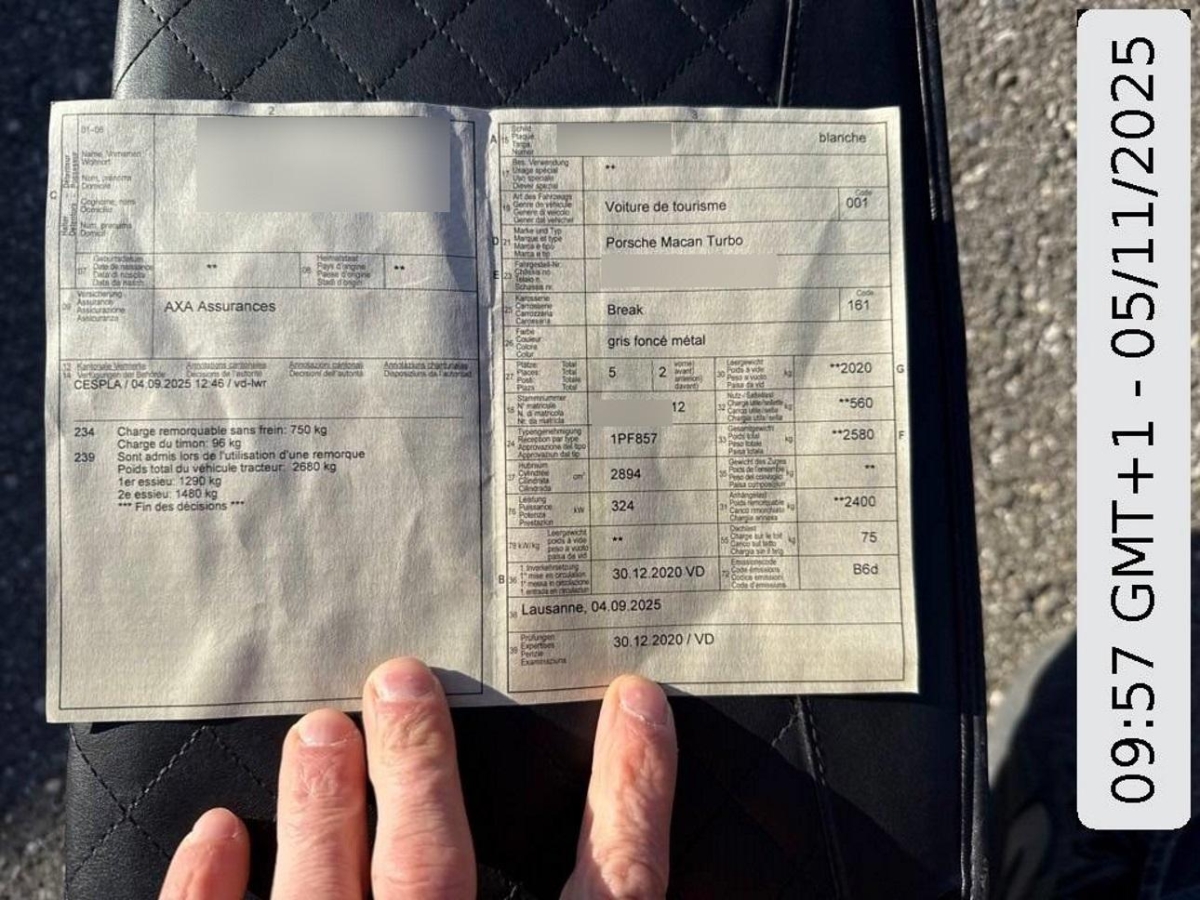 2
01-06
Name, Vornamen
Wohnort
Nom, prénoms
Domicile
Cognome, nomi
Domicilio
Num, prenums
Domicil
C
07
Geburtsdatum
Date de naissance
Data di nascita
Data da nasch.
**
08
Heimatstaat
Pays d'origine
Paese d'origine
Stadi d'origin
**
09
Versicherung
Assurance
Assicurazione
Assicuranza
AXA Assurances
13
14
Kantonale Vermerke
Verfügungen der Behörde
Annotations cantonales
Décisions de l'autorité
Annotazioni cantonali
Decisioni dell'autorità
Annotaziuns chantunalas
Disposiziuns da l'autoritad
CESPLA / 04.09.2025 12:46 / vd-lwr
234 Charge remorquable sans frein: 750 kg
Charge du timon: 96 kg
239 Sont admis lors de l'utilisation d'une remorque
Poids total du véhicule tracteur: 2680 kg
1er essieu: 1290 kg
2e essieu: 1480 kg
*** Fin des décisions ***
3
A 15
Schild
Plaque
Targa
Numer
blanche
17
Bes. Verwendung
Usage spécial
Uso speciale
Diever spezial
**
19
Art des Fahrzeugs
Genre de véhicule
Genere di veicolo
Gener dal vehichel
Voiture de tourisme
Code
001
D 21
Marke und Typ
Marque et type
Marca e tipo
Marca e tip
Porsche Macan Turbo
E 23
Fahrgestell-Nr.
Châssis no
Telaio n.
Schassis nr.
25
Karosserie
Carrosserie
Carrozzeria
Carossaria
Break
Code
161
26
Farbe
Couleur
Colore
Colur
gris foncé métal
27
Plätze: Total
Places: Total
Posti: Totale
Plazs: Total
5
2
vorne)
avant)
anteriori)
davant)
30
Leergewicht
Poids à vide
Peso a vuoto
Paisa da vid
kg
**2020
G
18
Stammnummer
N° matricule
N. di matricola
Nr. da matricla
12
32
Nutz-/Sattellast
Charge utile/sellette
Carico utile/sella
Chargia utila/sella
kg
**560
24
Typengenehmigung
Réception par type
Approvazione del tipo
Approvaziun dal tip
1PF857
33
Gesamtgewicht
Poids total
Peso totale
Paisa totala
kg
**2580
F
37
Hubraum
Cylindrée
Cilindrata
Cilindrada
cm³
2894
35
Gewicht des Zuges
Poids de l'ensemble
Peso del convoglio
Paisa cumposiziun
kg
**
76
Leistung
Puissance
Potenza
Prestaziun
kW
324
31
Anhängelast
Poids remorquable
Carico rimorchiato
Chargia annexa
kg
**2400
78 kW/kg
Leergewicht
poids à vide
peso a vuoto
paisa da vid
**
55
Dachlast
Charge sur le toit
Carico sul tetto
Chargia sin il tetg
kg
75
B 36
1. Inverkehrsetzung
1re mise en circulation
1a messa in circolazione
1. entrada en circulaziun
30.12.2020 VD
72
Emissionscode
Code émissions
Codice emissioni
Code d'emissiuns
B6d
38
Lausanne, 04.09.2025
39
Prüfungen
Expertises
Perizie
Examinaziuns
30.12.2020 / VD
09:57 GMT+1 - 05/11/2025